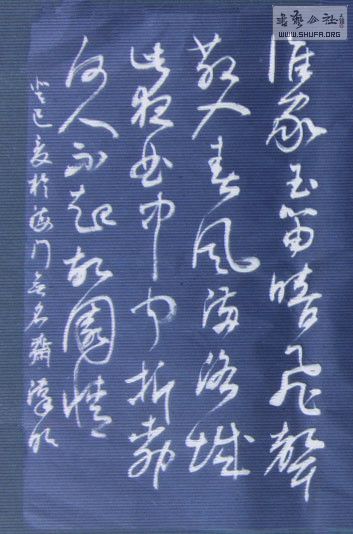 谁家玉笛暗飞声
散入春风满洛城
此夜曲中闻折柳
何人不起故园情
癸巳夏于海门无名斋
书艺公社
WWW.SHUFA.ORG